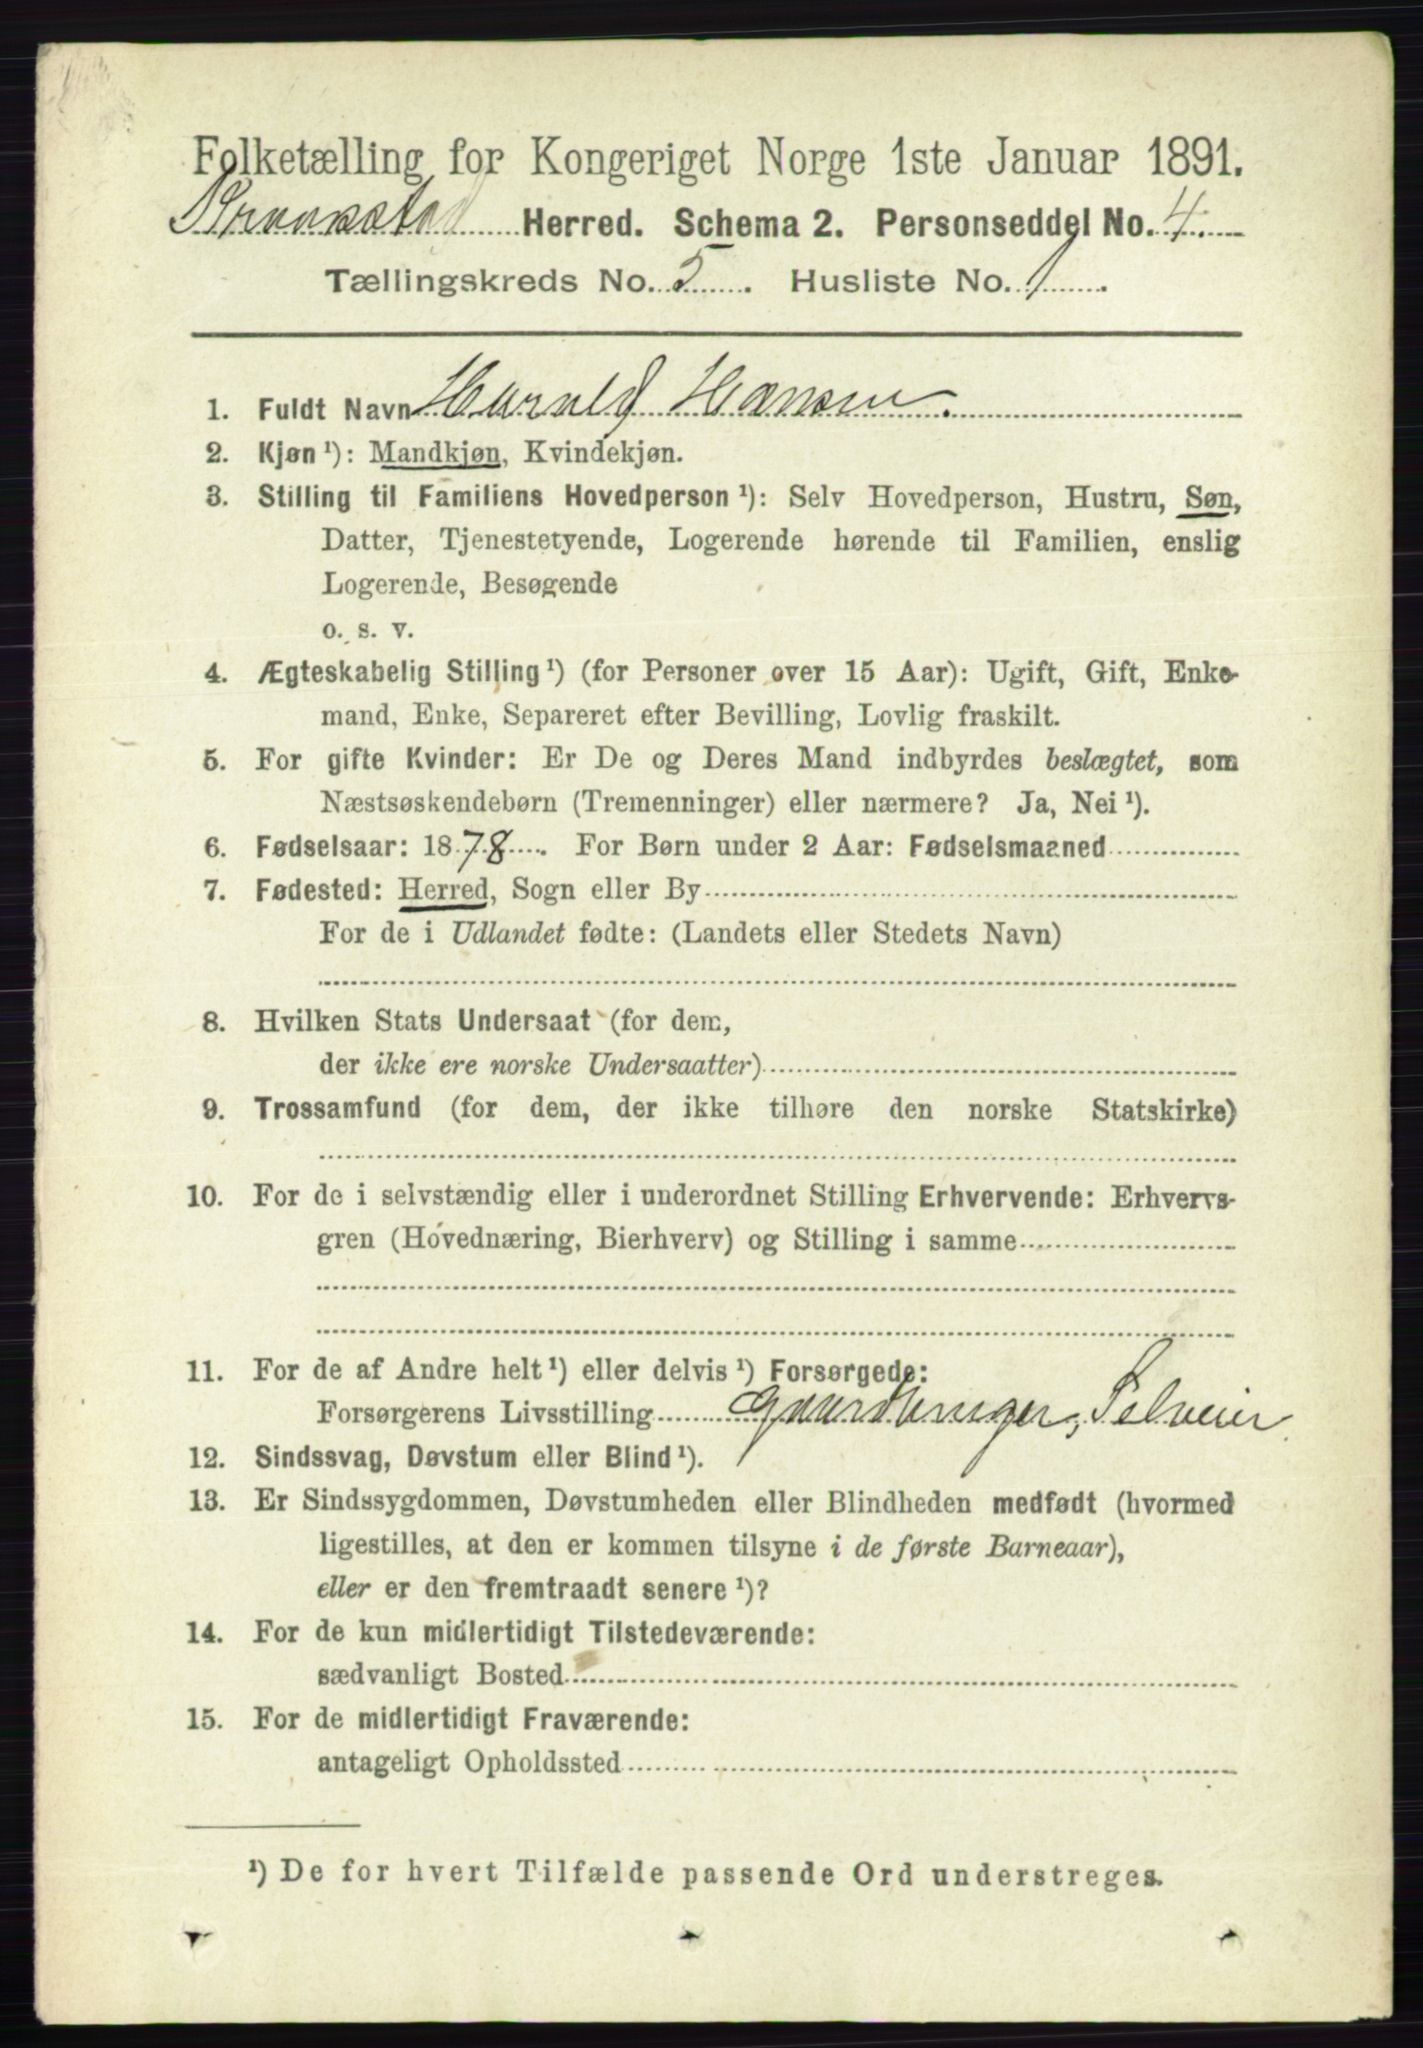 Folketælling for Kongeriget Norge 1ste Januar 1891.
Kraakstad Herred. Schema 2. Personseddel No. 4.
Tællingskreds No. 5. Husliste No. 1.
1. Fuldt Navn Harald Hansen.
2. Kjøn ¹): Mandkjøn, Kvindekjøn.
3. Stilling til Familiens Hovedperson ¹): Selv Hovedperson, Hustru, Søn,
Datter, Tjenestetyende, Logerende hørende til Familien, enslig
Logerende, Besøgende
o. s. v.
4. Ægteskabelig Stilling ¹) (for Personer over 15 Aar): Ugift, Gift, Enke-
mand, Enke, Separeret efter Bevilling, Lovlig fraskilt.
5. For gifte Kvinder: Er De og Deres Mand indbyrdes beslægtet, som
Næstsøskendebørn (Tremenninger) eller nærmere? Ja, Nei ¹).
6. Fødselsaar: 1878. For Børn under 2 Aar: Fødselsmaaned
7. Fødested: Herred, Sogn eller By
For de i Udlandet fødte: (Landets eller Stedets Navn)
8. Hvilken Stats Undersaat (for dem,
der ikke ere norske Undersaatter)
9. Trossamfund (for dem, der ikke tilhøre den norske Statskirke)
10. For de i selvstændig eller i underordnet Stilling Erhvervende: Erhvervs-
gren (Hovednæring, Bierhverv) og Stilling i samme
11. For de af Andre helt ¹) eller delvis ¹) Forsørgede:
Forsørgerens Livsstilling Gaardbruger, Selveier
12. Sindssvag, Døvstum eller Blind ¹).
13. Er Sindssygdommen, Døvstumheden eller Blindheden medfødt (hvormed
ligestilles, at den er kommen tilsyne i de første Barneaar),
eller er den fremtraadt senere ¹)?
14. For de kun midlertidigt Tilstedeværende:
sædvanligt Bosted
15. For de midlertidigt Fraværende:
antageligt Opholdssted
¹) De for hvert Tilfælde passende Ord understreges.